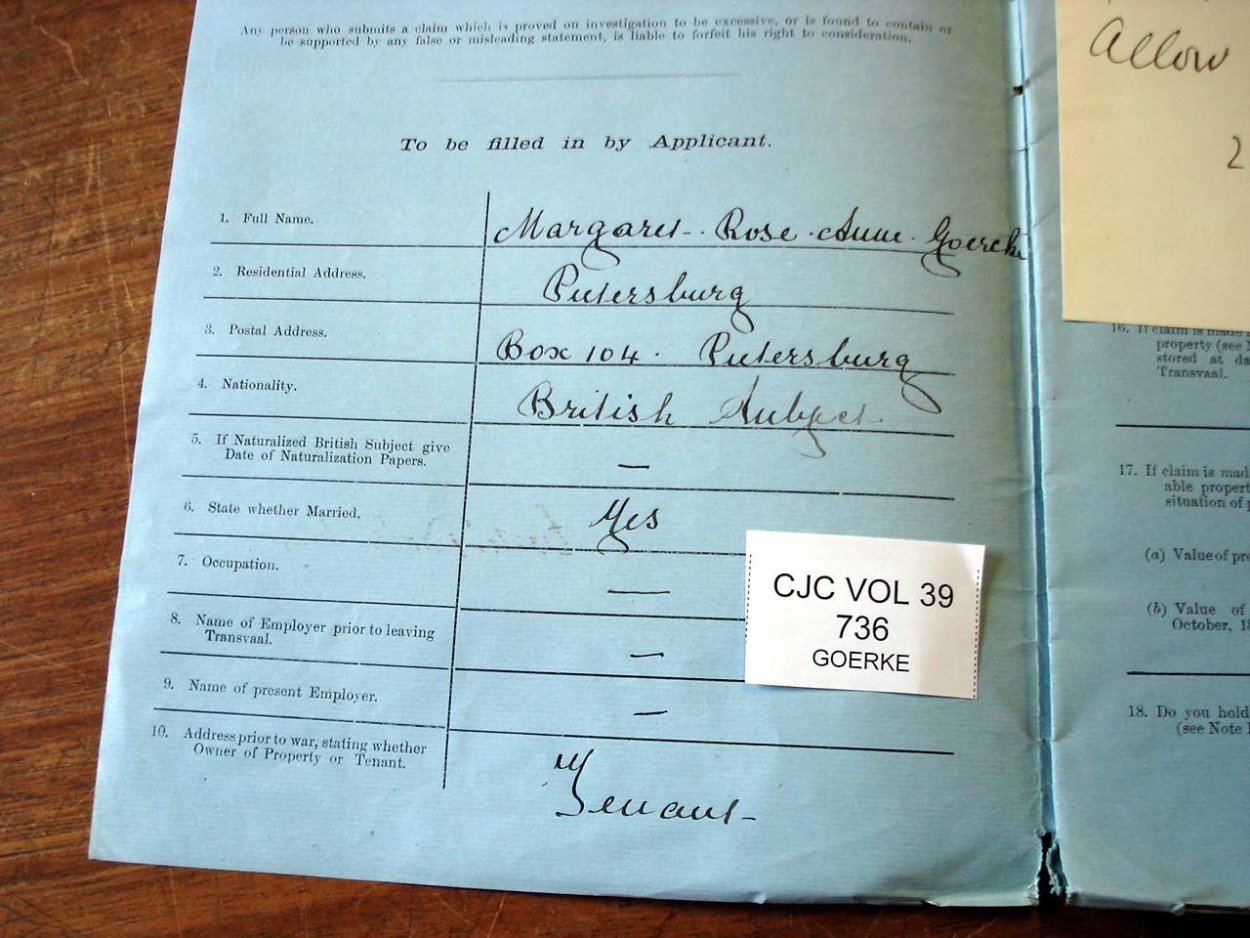 Any person who submits a claim which is proved on investigation to be excessive, or is found to contain or
be supported by any false or misleading statement, is liable to forfeit his right to consideration.
To be filled in by Applicant.
1. Full Name. Margaret Rose Anne Goerke
2. Residential Address. Pietersburg
3. Postal Address. Box 104. Pietersburg
4. Nationality. British Subject
5. If Naturalized British Subject give
Date of Naturalization Papers. —
6. State whether Married. Yes
7. Occupation. —
8. Name of Employer prior to leaving
Transvaal. —
9. Name of present Employer. —
10. Address prior to war, stating whether
Owner of Property or Tenant. Tenant
CJC VOL 39
736
GOERKE
Allow
2
16. If claim is made
property (see N
stored at da
Transvaal.
17. If claim is mad
able propert
situation of p
(a) Value of pre
(b) Value of
October, 18
18. Do you hold
(see Note